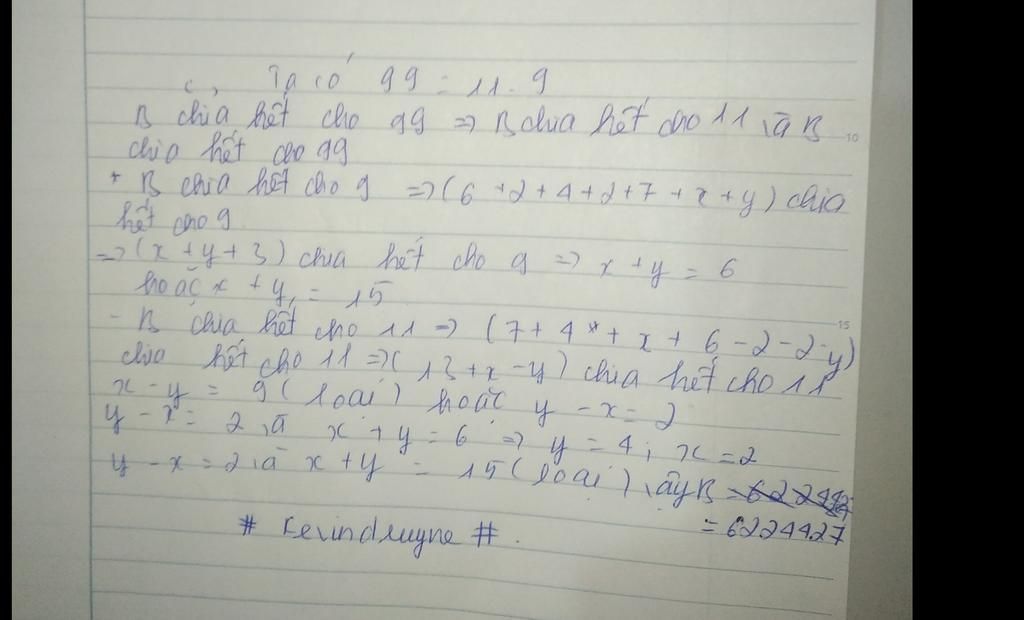 c, Ta có 99 = 11.9
B chia hết cho 99 => B chia hết cho 11 và B
chia hết cho 99
+ B chia hết cho 9 => (6+2+4+2+7+x+y) chia
hết cho 9
=> (x+y+3) chia hết cho 9 => x+y = 6
hoặc x+y = 15
- B chia hết cho 11 => (7+4+x+6-2-2-y)
chia hết cho 11 => (13+x-y) chia hết cho 11
x-y = 9 (loại) hoặc y-x = 2
y-x = 2 và x+y = 6 => y = 4; x = 2
y-x = 2 và x+y = 15 (loại) vậy B =
= 6224427
# Kevindruyne #.
10
15